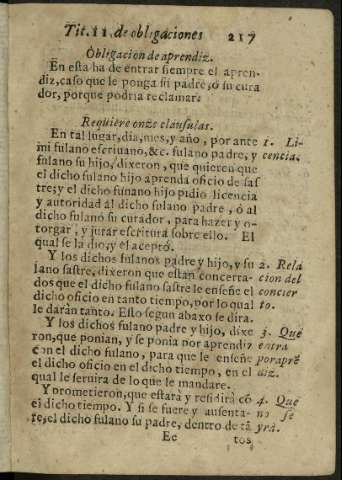 Tit. 11. de obligaciones 217
Obligacion de aprendiz.
En esta ha de entrar siempre el apren-
diz, caso que le ponga su padre, ó su cura
dor, porque podria reclamar.
Requiere onze clausulas.
En tal lugar, dia, mes, y año, por ante 1. Li-
mi fulano escriuano, &c. fulano padre, y cencia.
fulano su hijo, dixeron, que quieren que
el dicho fulano hijo aprenda oficio de sas
tre; y el dicho fulano hijo pidio licencia
y autoridad al dicho fulano padre, ó al
dicho fulano su curador, para hazer y o-
torgar, y jurar escritura sobre ello. El
qual se la dio, y el aceptó.
Y los dichos fulanos padre y hijo, y su 2. Rela
lano sastre, dixeron que estan concerta- cion del
dos que el dicho fulano sastre le enseñe el concier
dicho oficio en tanto tiempo, por lo qual to.
le darán tanto. Esto segun abaxo se dira.
Y los dichos fulano padre y hijo, dixe 3. Que
ron, que ponian, y se ponia por aprendiz entra
con el dicho fulano, para que le enseñe por apré
el dicho oficio en el dicho tiempo, en el diz.
qual le seruira de lo que le mandare.
Y prometieron, que estará y residirá có 4. Que
el dicho tiempo. Y si se fuere y ausenta- no se
re, el dicho fulano su padre, dentro de tã yrá.
Ee tos